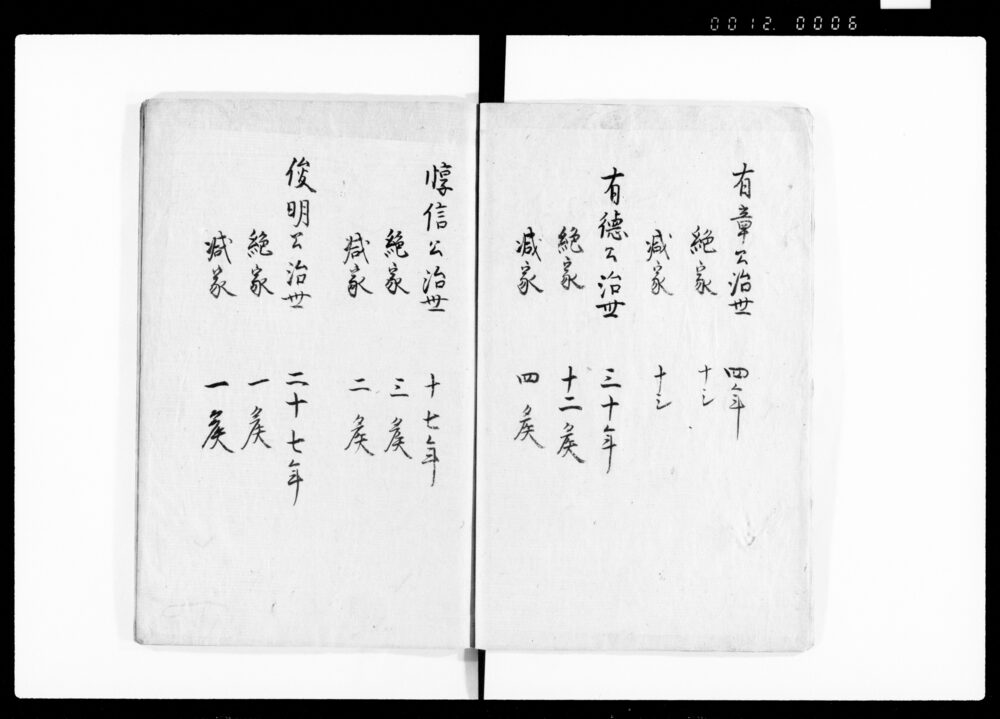 0012. 0006
有章公治世 四年
絶家 ナシ
减家 ナシ
有徳公治世 三十年
絶家 十二侯
减家 四侯
惇信公治世 十七年
絶家 三侯
减家 二侯
俊明公治世 二十七年
絶家 一侯
减家 一侯